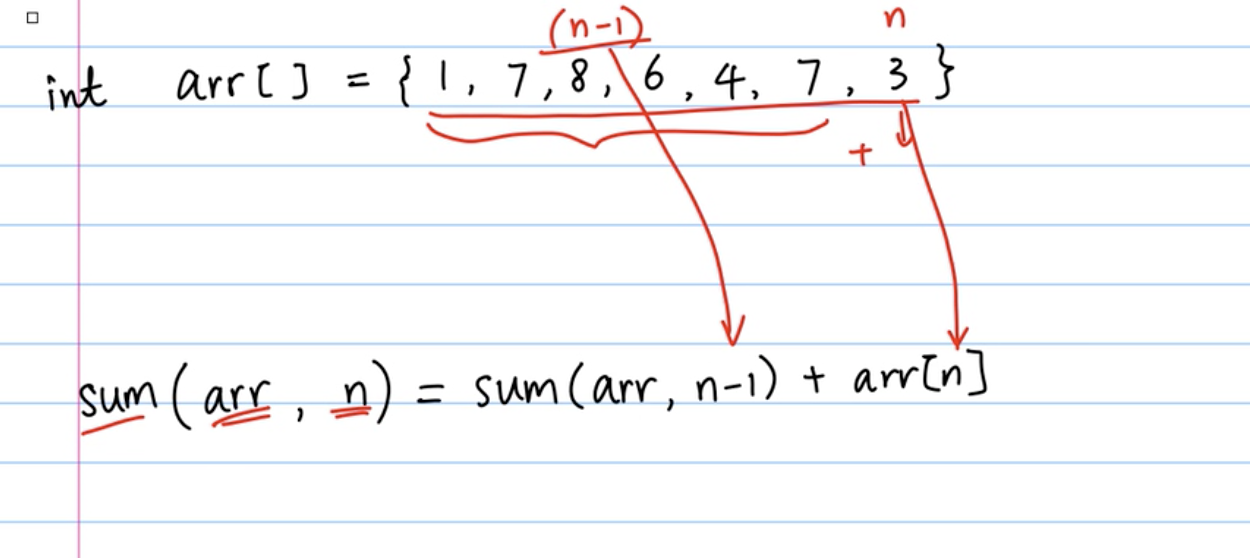 (n-1) n
int arr[] = {1, 7, 8, 6, 4, 7, 3}
+
sum(arr, n) = sum(arr, n-1) + arr[n]